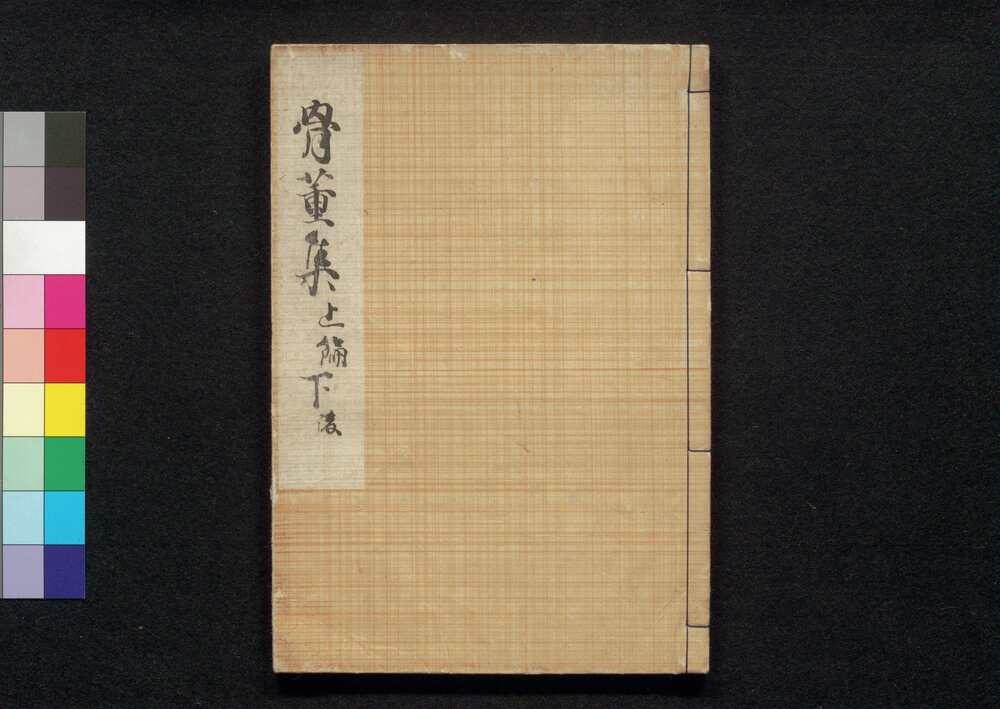 骨董集上編下後